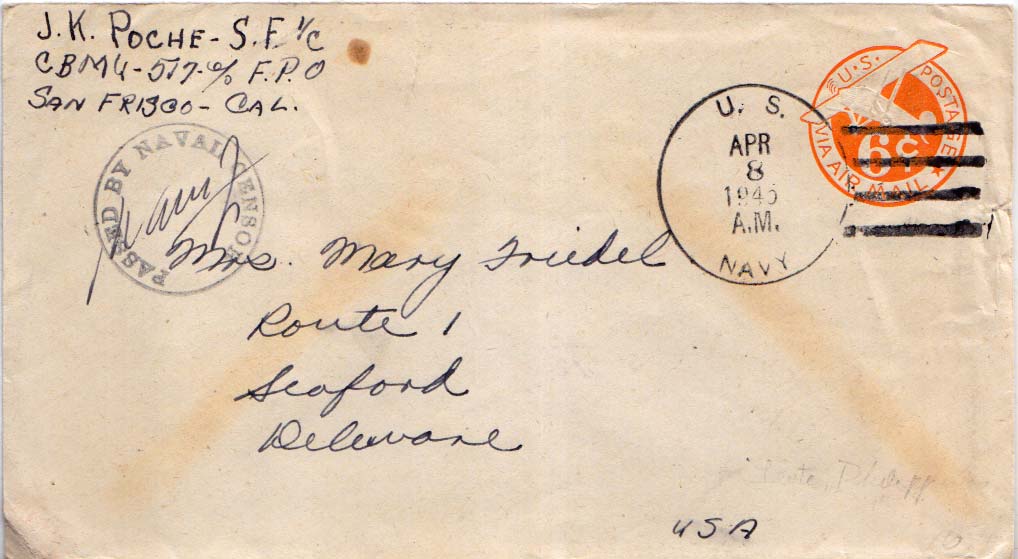 J. K. POCHE - S.F. 1/C
CBMU - 517 - c/o F.P.O
SAN FRISCO - CAL.
PASSED BY NAVAL CENSOR
U. S.
APR
8
1945
A.M.
NAVY
U.S. POSTAGE
6¢
VIA AIR MAIL
Mrs. Mary Friedel
Route 1
Seaford
Deleware
USA